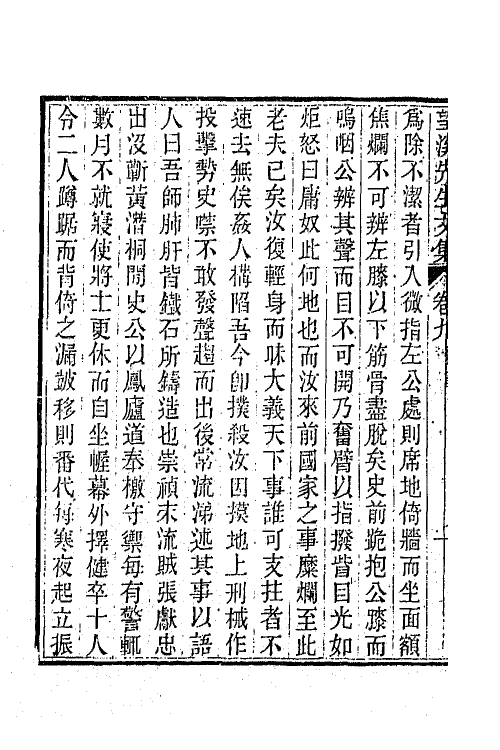 望溪先生文集 卷九
爲除不潔者引入微指左公處則席地倚牆而坐面額
焦爛不可辨左膝以下筋骨盡脫矣史前跪抱公膝而
嗚咽公辨其聲而目不可開乃奮臂以指撥眥目光如
炬怒曰庸奴此何地也而汝來前國家之事糜爛至此
老夫已矣汝復輕身而昧大義天下事誰可支拄者不
速去無俟姦人構陷吾今卽撲殺汝因摸地上刑械作
投擊勢史噤不敢發聲趨而出後常流涕述其事以語
人曰吾師肺肝皆鐵石所鑄造也崇禎末流賊張獻忠
出沒蘄黃潛桐閒史公以鳳廬道奉檄守禦每有警輒
數月不就寢使將士更休而自坐幄幕外擇健卒十人
令二人蹲踞而背倚之漏鼓移則番代每寒夜起立振